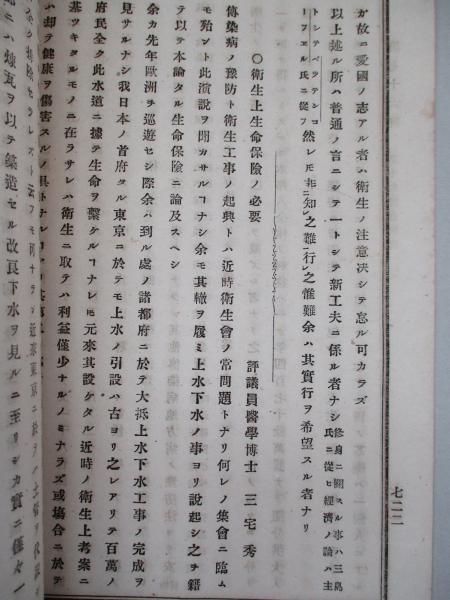 七二二
カ故ニ愛國ノ志アル者ハ衛生ノ注意决シテ怠ル可カラズ
以上述ル所ハ普通ノ言ニシテ一トシテ新工夫ニ係ル者ナシ修身ニ關スル事ハ三島氏ニ從ヒ經濟ノ論ハ主
トシテバツテンコーフエル氏ニ從フ然レモ非知之難行之惟難余ハ其實行ヲ希望スル者ナリ
〇衛生上生命保險ノ必要
評議員醫學博士ノ三宅秀
傳染病ノ豫防ト衛生工事ノ起興トハ近時衛生會ノ常問題トナリ何レノ集會ニ臨ム
モ殆ント此演説ヲ聞カサルヿナシ余モ其轍ヲ履ミ上水下水ノ事ヨリ說起シ之ヲ籍
テ以テ本論タル生命保險ニ論及スヘシ
余カ先年歐洲ヲ巡遊セシ際余ハ到ル處ノ諸都府ニ於テ大抵上水下水工事ノ完成ヲ
見サルナシ我日本ノ首府タル東京ニ於テモ上水ノ引設ハ古ヨリ之レアリテ百萬ノ
府民全ク此水道ニ據テ生命ヲ繫ケルヿナレモ元來其設ケタル近時ノ衛生上考案ニ
基ツキタルモノニ在ラサレハ衛生ニ取テハ利益僅少ナルノミナラズ或場合ニ於テ
ハ却テ健康ヲ傷害スルノ具トナレ
ニハ煉瓦ヲ以テ築造セル改良下水ヲ見ルニ至リシカ實ニ僅々一